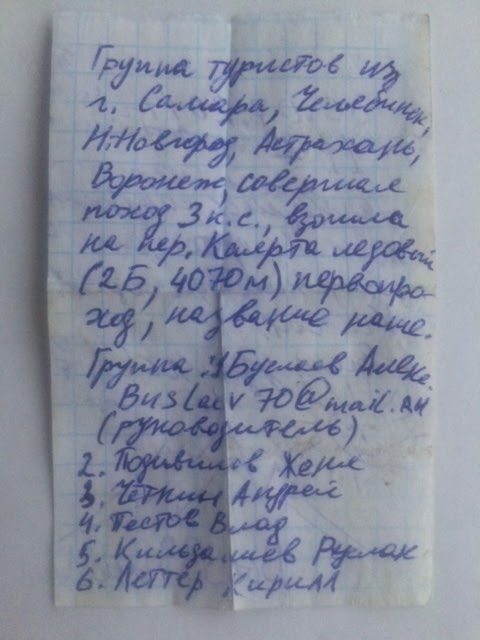 Группа туристов из
г. Самара, Челябинск,
Н.Новгород, Астрахань,
Воронеж, совершая
поход 3 к.с., взошла
на пер. Калерта ледовый
(2Б, 4070м) первопро-
ход, название наше.
Группа: 1 Буслаев Алекс.
Buslaev 70@mail.ru
(руководитель)
2. Подивилов Женя
3. Четкин Андрей
4. Тестов Влад
5. Кильдалиев Руслан
6. Леттер Кирилл